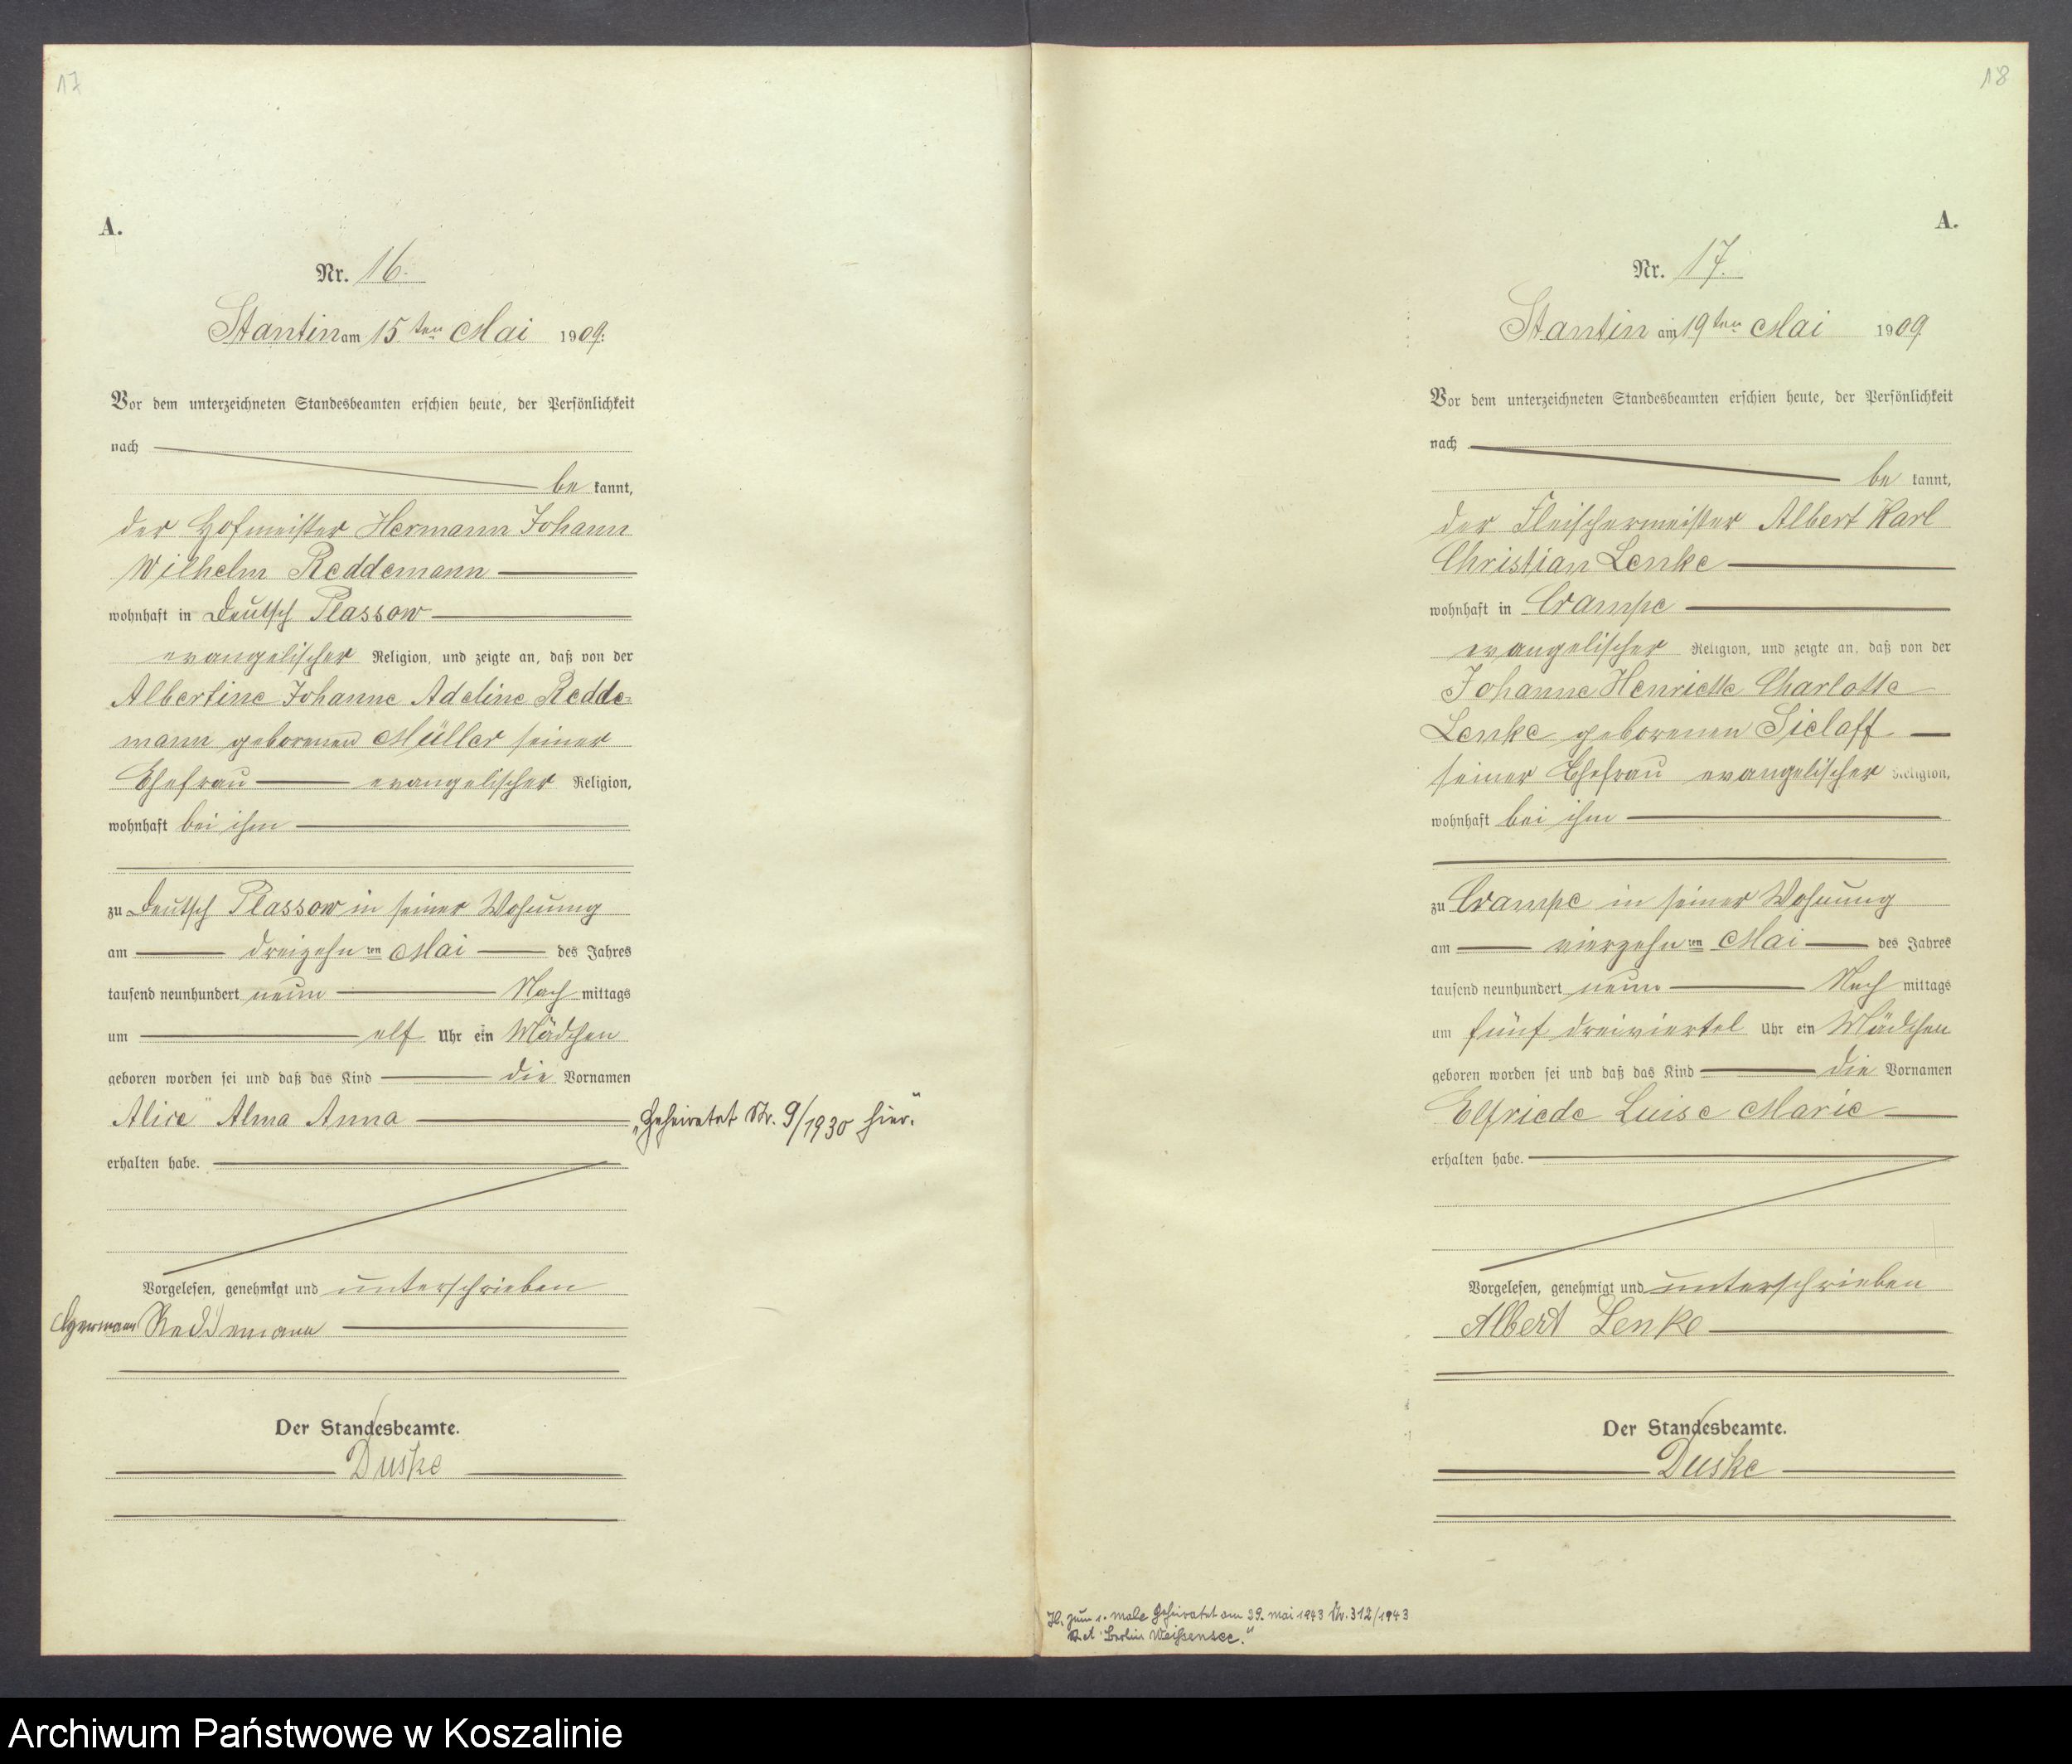 17
A.
Nr. 16.
Stantin am 15ten Mai 1909.
Vor dem unterzeichneten Standesbeamten erschien heute, der Persönlichkeit
nach
be kannt,
der Hofmeister Hermann Johann
Wilhelm Reddemann
wohnhaft in Deutsch Plassow
evangelischer Religion, und zeigte an, daß von der
Albertine Johanne Adeline Redde-
mann geborenen Müller seiner
Ehefrau evangelischer Religion,
wohnhaft bei ihm
zu Deutsch Plassow in seiner Wohnung
am dreizehn ten Mai des Jahres
tausend neunhundert neun Nach mittags
um elf Uhr ein Mädchen
geboren worden sei und daß das Kind die Vornamen
Alice Alma Anna
„Geheiratet Nr. 9/1930 hier."
erhalten habe.
Vorgelesen, genehmigt und unterschrieben
Hermann Reddemann
Der Standesbeamte.
Duske
18
A.
Nr. 17.
Stantin am 19ten Mai 1909
Vor dem unterzeichneten Standesbeamten erschien heute, der Persönlichkeit
nach
be kannt,
der Fleischermeister Albert Karl
Christian Lenke
wohnhaft in Crampe
evangelischer Religion, und zeigte an, daß von der
Johanne Henriette Charlotte
Lenke geborenen Sielaff
seiner Ehefrau evangelischer Religion,
wohnhaft bei ihm
zu Crampe in seiner Wohnung
am vierzehn ten Mai des Jahres
tausend neunhundert neun Nach mittags
um fünf dreiviertel Uhr ein Mädchen
geboren worden sei und daß das Kind die Vornamen
Elfriede Luise Marie
erhalten habe.
Vorgelesen, genehmigt und unterschrieben
Albert Lenke
Der Standesbeamte.
Duske
zum 1. male geheiratet am 29. mai 1943 Nr. 312/1943
Berlin Weißensee."
Archiwum Państwowe w Koszalinie